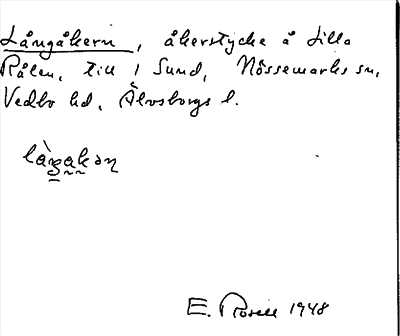 Långåkern, åkerstycke å Lilla
Rålen, till 1 Sund, Nössemarks sn,
Vedbo hd, Älvsborgs l.
làŋakən
E. Rosell 1948